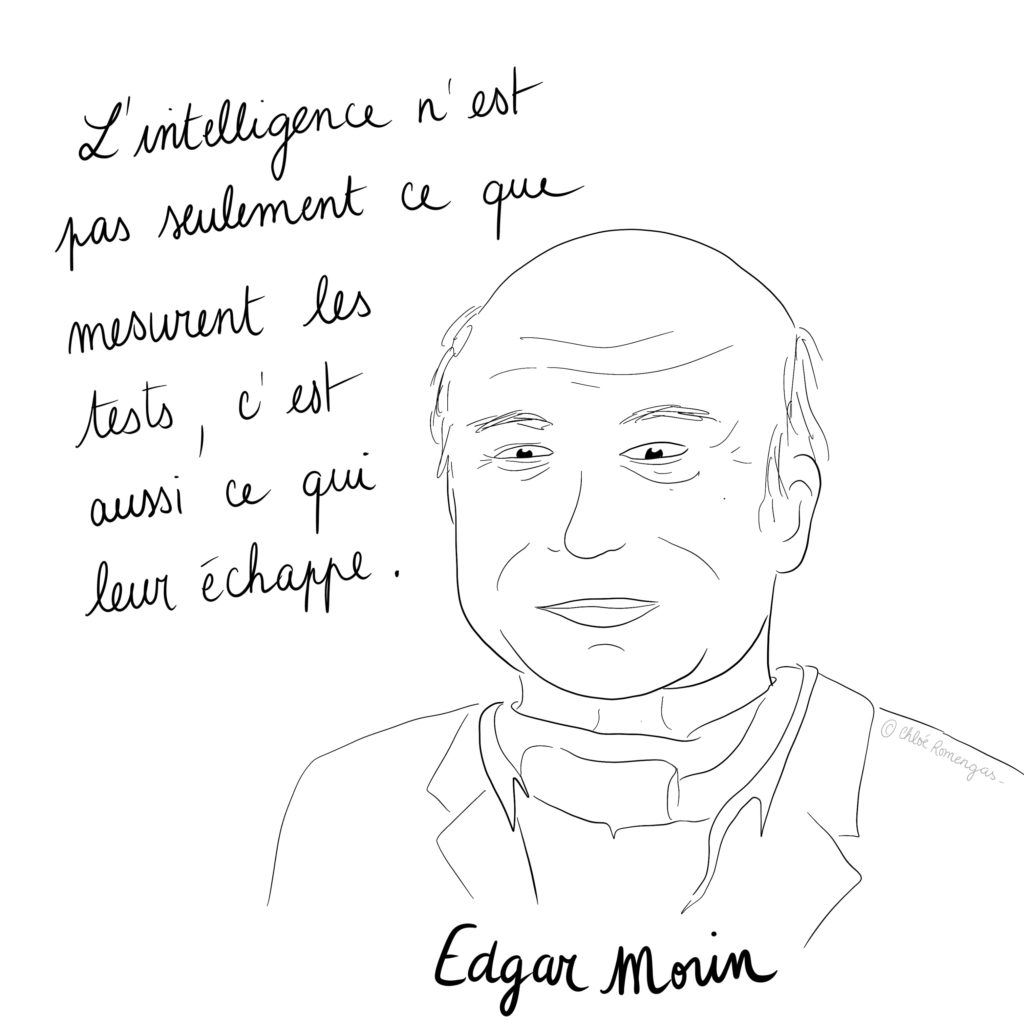 L'intelligence n'est
pas seulement ce que
mesurent les
tests, c'est
aussi ce qui
leur échappe.
© Chloé Romengas
Edgar Morin